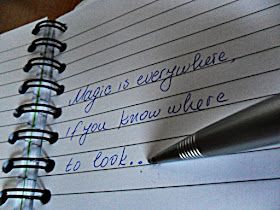 Magic is everywhere,
if you know where
to look...